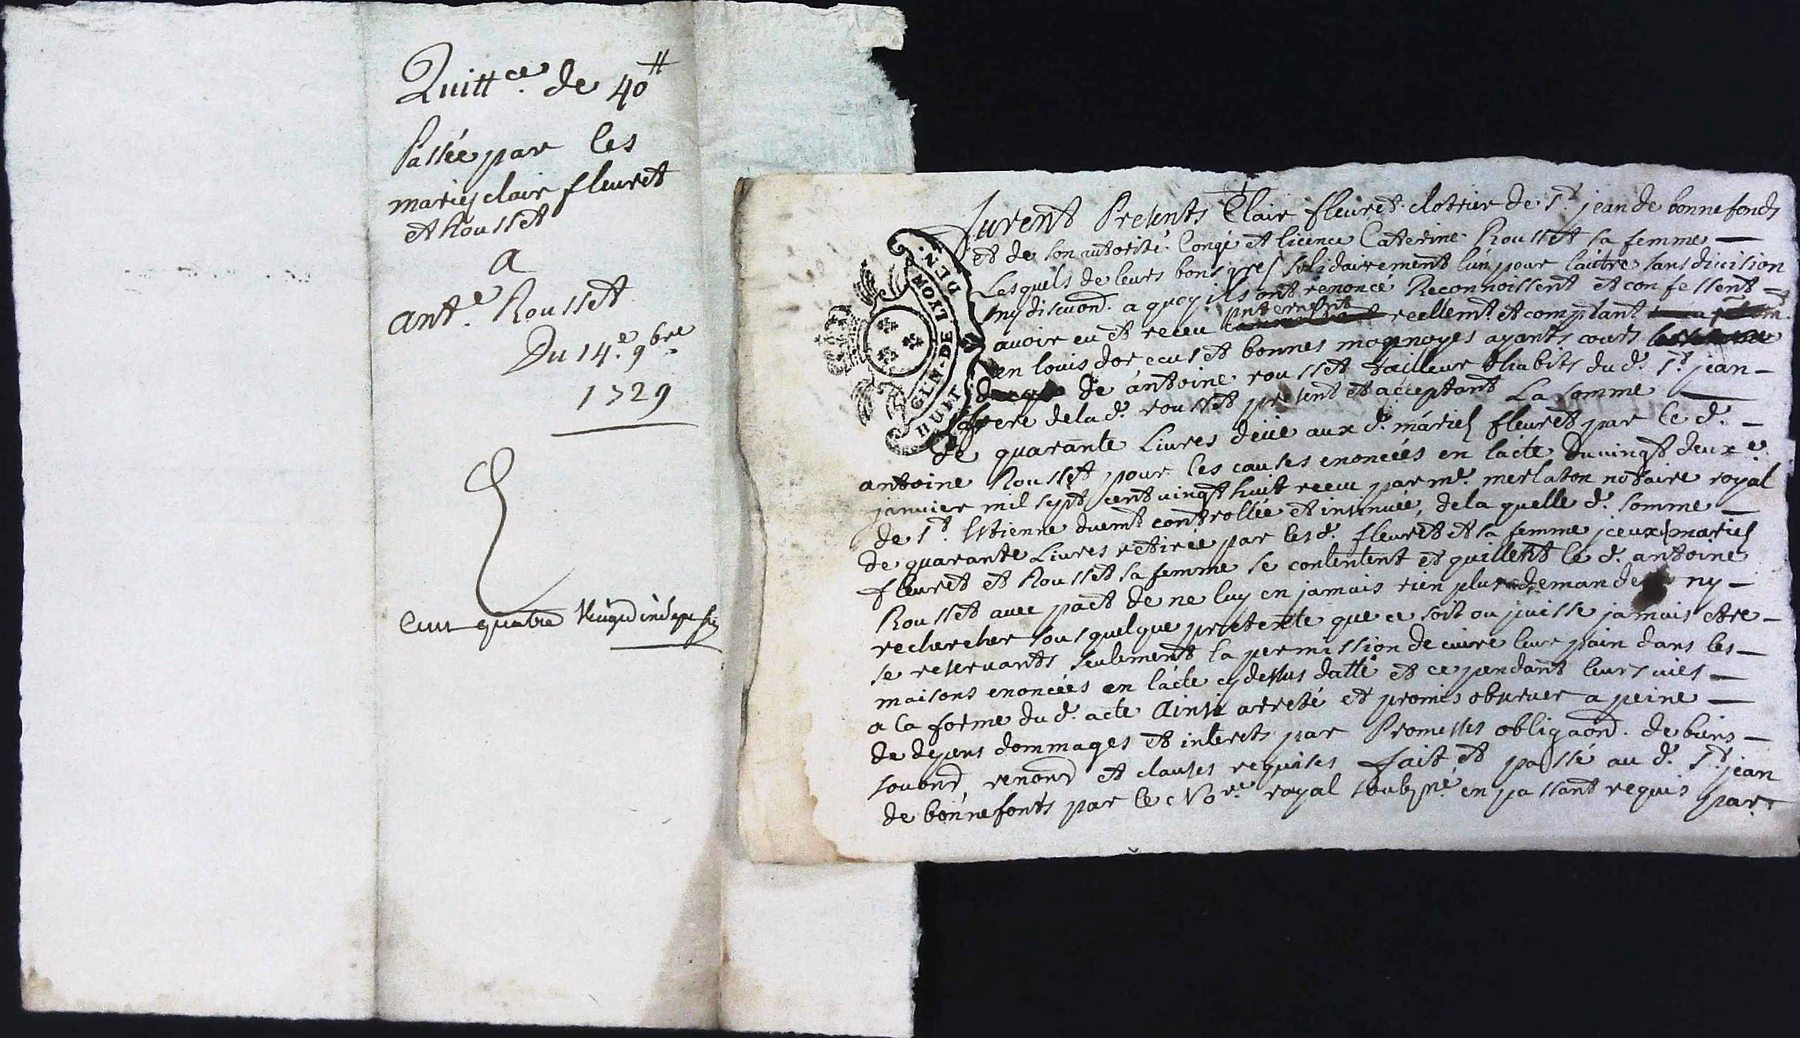 Quitt.ce de 40#
Passée par les
mariés clair fleuret
et Rousset
a
ant.e Rousset
Du 14.e 9bre
1729
Cent quatre vingt
GEN. DE LYON
HUIT DEN.
furent Presents Clair fleuret clotrier de St. jean de bonnefonds
et de son autorité Congé et licence Caterine Rousset sa femme —
Lesquels de leurs bons gres solidairement l'un pour l'autre sans division
ny discuon. a quoy ils ont renoncé Reconnoissent et confessent —
avoir eu et receu reellemt. et comptant
en louis dor ecus et bonnes monnoyes ayants cours
de antoine rousset tailleur dhabits du d. St. jean —
frere de la d. rousset present et acceptant La somme —
de quarante Livres deüe aux d. mariés fleuret par le d. —
antoine Rousset pour les causes enoncées en l'acte du vingt deux e.
janvier mil sept cent vingt huit receu par me. merlaton notaire royal
de St. Estienne duemt. controllée et insinuée, de la quelle d. somme —
de quarante Livres retirée par les d. fleuret et sa femme yceux mariés
fleuret et Rousset sa femme se contentent et quittent le d. antoine
Rousset avec pact de ne luy en jamais rien plus demander ny —
rechercher sous quelque pretexte que ce soit ou puisse jamais etre —
se reservants seulement la permission de cuire leur pain dans les —
maisons enoncées en l'acte cy dessus datté et ce pendant leurs vies —
a la forme du d. acte Ainsi arreté et promis observer a peine —
de depens dommages et interets par Promesses obligaon. de biens —
soubmd. renond. et clauses requises fait et passé au d. St. jean
de bonnefonts par le No.re royal soubzné en passant requis par